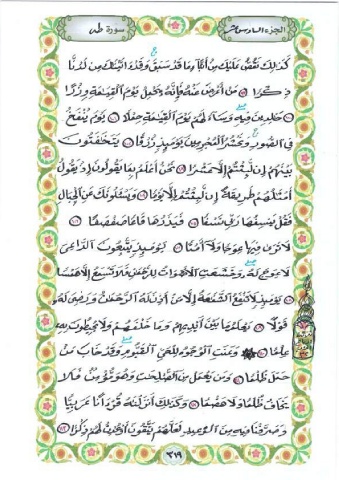 الجزء السادس عشر
سورة طه
كذلك نقص عليك من أنباء ما قد سبق وقد آتينك من لدنا
ذكرا من أعرض عنه فإنه يحمل يوم القيمة وزرا
خلدين فيه وساء لهم يوم القيمة حملا يوم ينفخ
في الصور ونحشر المجرمين يومئذ زرقا يتخفتون
بينهم إن لبثتم إلا عشرا نحن أعلم بما يقولون إذ يقول
أمثلهم طريقة إن لبثتم إلا يوما ويسئلونك عن الجبال
فقل ينسفها ربي نسفا فيذرها قاعا صفصفا
لا ترى فيها عوجا ولا أمتا يومئذ يتبعون الداعي
لا عوج له وخشعت الأصوات للرحمن فلا تسمع إلا همسا
يومئذ لا تنفع الشفعة إلا من أذن له الرحمن ورضي له
قولا يعلم ما بين أيديهم وما خلفهم ولا يحيطون به
علما وعنت الوجوه للحي القيوم وقد خاب من
حمل ظلما ومن يعمل من الصلحت وهو مؤمن فلا
يخاف ظلما ولا هضما وكذلك أنزلنه قرآنا عربيا
وصرفنا فيه من الوعيد لعلهم يتقون أو يحدث لهم ذكرا
٣١٩